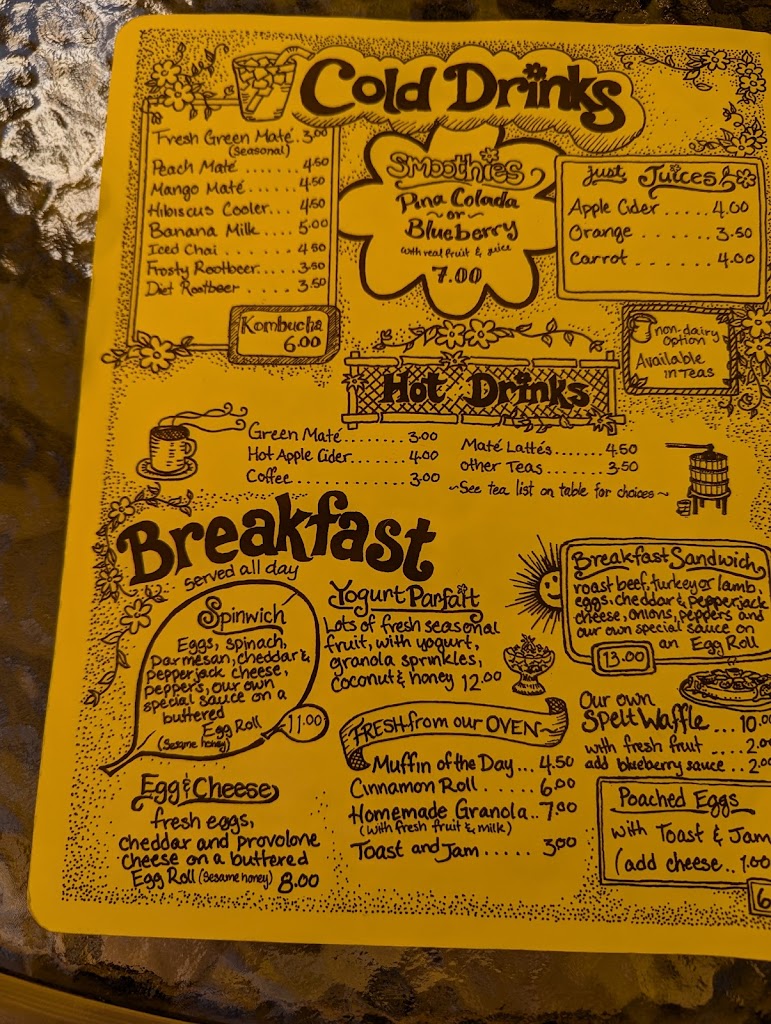 Cold Drinks
Fresh Green Maté. 3.00
(seasonal)
Peach Maté ....... 4.50
Mango Maté ...... 4.50
Hibiscus Cooler... 4.50
Banana Milk .... 5.00
Iced Chai ....... 4.50
Frosty Rootbeer.... 3.50
Diet Rootbeer ..... 3.50
Kombucha
6.00
Smoothies
Pina Colada
~ or ~
Blueberry
with real fruit & juice
7.00
just Juices
Apple Cider ..... 4.00
Orange ....... 3.50
Carrot ....... 4.00
non-dairy
option
Available
in Teas
Hot Drinks
Green Maté ........ 3.00
Hot Apple Cider....... 4.00
Coffee............... 3.00
Maté Lattés....... 4.50
other Teas ....... 3.50
~See tea list on table for choices~
Breakfast
served all day
Spinwich
Eggs, spinach,
parmesan, cheddar &
pepperjack cheese,
peppers, our own
special sauce on a
buttered
Egg Roll
(Sesame honey)
11.00
Egg & Cheese
fresh eggs,
cheddar and provolone
cheese on a buttered
Egg Roll (Sesame honey) 8.00
Yogurt Parfait
Lots of fresh seasonal
fruit, with yogurt,
granola sprinkles,
coconut & honey 12.00
FRESH from our OVEN~
Muffin of the Day... 4.50
Cinnamon Roll ..... 6.00
Homemade Granola.. 7.00
(with fresh fruit & milk)
Toast and Jam ...... 3.00
Breakfast Sandwich
roast beef, turkey or lamb,
eggs, cheddar & pepperjack
cheese, onions, peppers and
our own special sauce on
an Egg Roll
13.00
Our own
Spelt Waffle ... 10.0
with fresh fruit .... 2.0
add blueberry sauce .. 2.0
Poached Eggs
with Toast & Jam
(add cheese.. 1.00
6